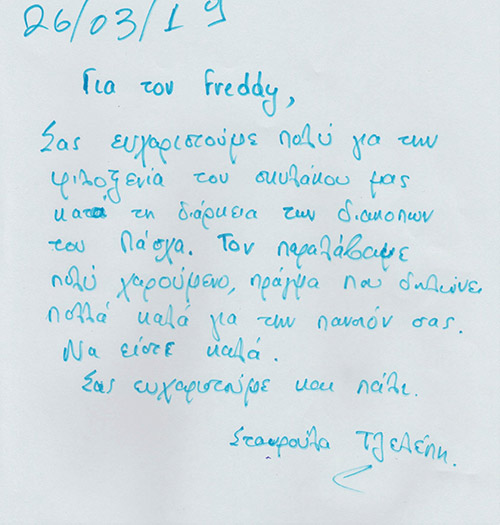 26/03/19
Για τον Freddy,
Σας ευχαριστούμε πολύ για την
φιλοξενία του σκυλάκου μας
κατά τη διάρκεια των διακοπων
του Πάσχα. Τον παραλάβαμε
πολύ χαρούμενο, πράγμα που δηλώνει
πολλά καλά για την πανσιόν σας.
Να είστε καλά.
Σας ευχαριστούμε και πάλι.
Σταυρούλα Τζελέπη.